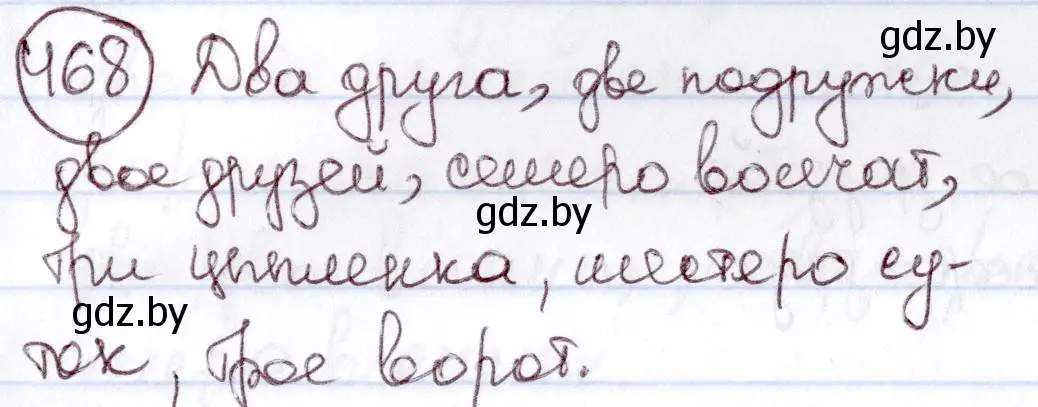 468 Два друга, две подружки,
двое друзей, семеро волчат,
три цыпленка, шестеро су-
ток, трое ворот.
gdz.by
gdz.by
gdz.by